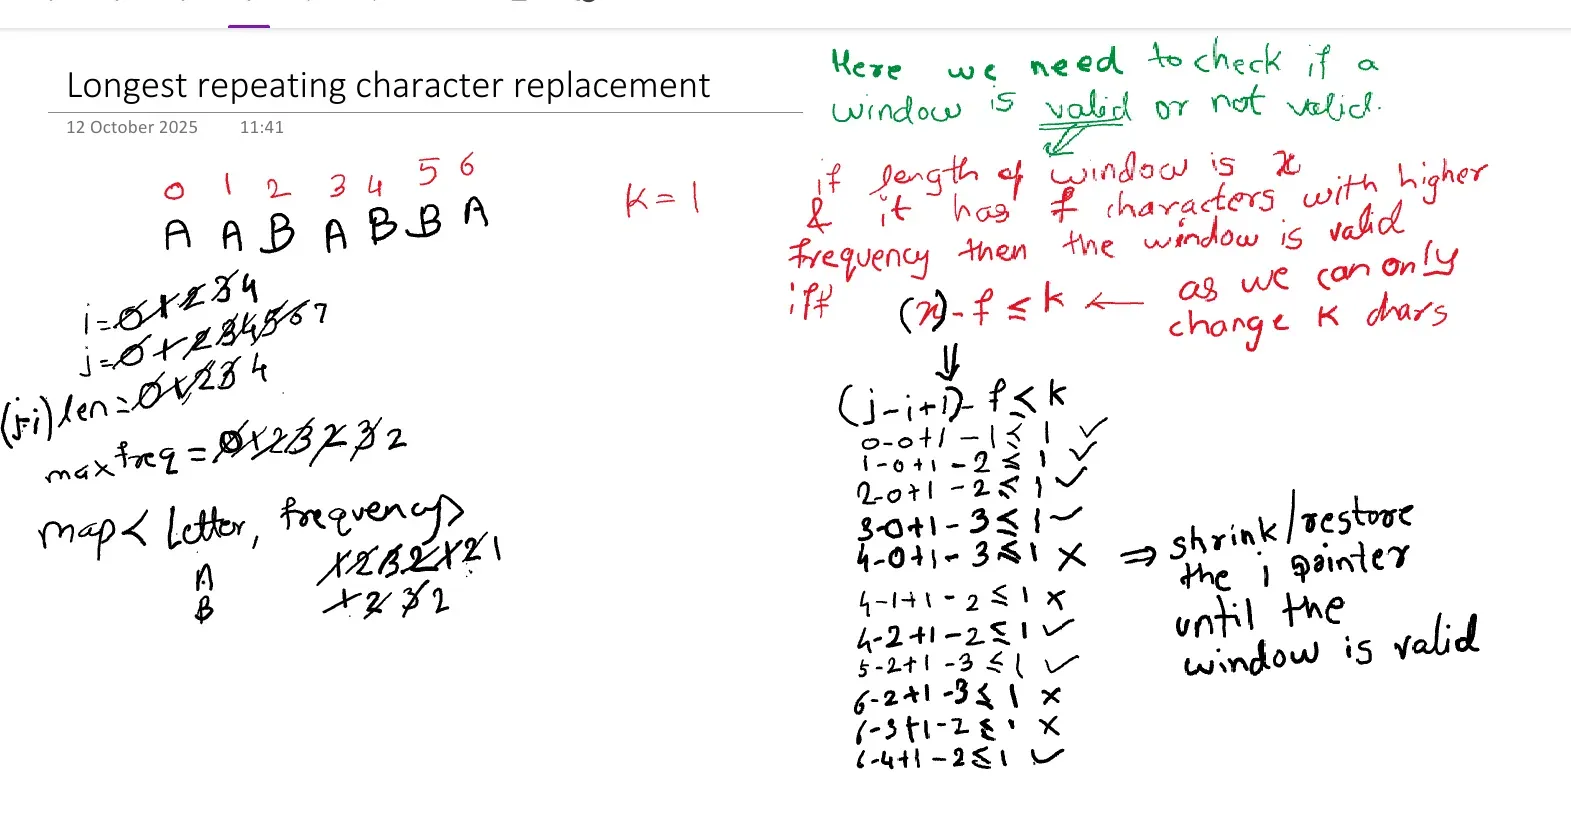 Longest repeating character replacement
12 October 2025 11:41
0 1 2 3 4 5 6
A A B A B B A
K = 1
i = 0 1 2 3 4
j = 0 1 2 3 4 5 6 7
(j-i) len = 0 1 2 3 4
maxfreq = 0 1 2 3 2 3 2
map< Letter, frequency>
A 1 2 3 2 1 2 1
B 1 2 3 2
Here we need to check if a
window is valid or not valid.
if length of window is x
& it has f characters with higher
frequency then the window is valid
iff (x) - f ≤ k ← as we can only
change K chars
⇓
(j-i+1) - f ≤ k
0-0+1 - 1 ≤ 1 ✓
1-0+1 - 2 ≤ 1 ✓
2-0+1 - 2 ≤ 1 ✓
3-0+1 - 3 ≤ 1 ✓
4-0+1 - 3 ≤ 1 ×
4-1+1 - 2 ≤ 1 ×
4-2+1 - 2 ≤ 1 ✓
5-2+1 - 3 ≤ 1 ✓
6-2+1 - 3 ≤ 1 ×
6-3+1 - 2 ≤ 1 ×
6-4+1 - 2 ≤ 1 ✓
⇒ shrink/restore
the i pointer
until the
window is valid